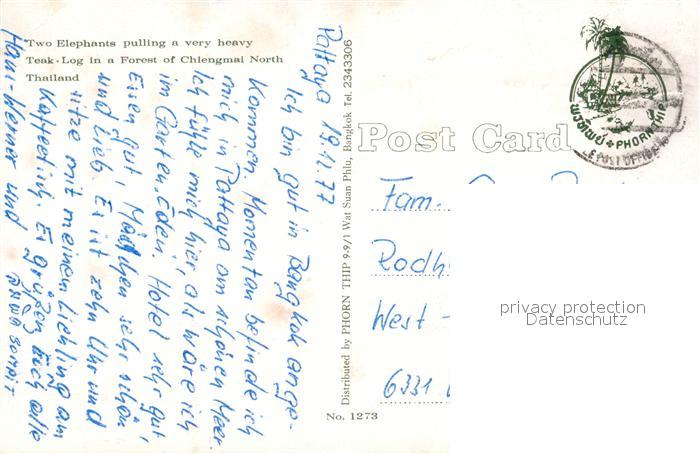 Two Elephants pulling a very heavy
Teak-Log in a Forest of Chiengmai North
Thailand
Pattaya 19.12.77
Ich bin gut in Bangkok ange-
kommen. Momentan befinde ich
mich in Pattaya am schönen Meer.
Ich fühle mich hier, als wäre ich
im Garten Eden. Hotel sehr gut,
Essen gut, Mädchen sehr schön
und lieb. Es ist zehn Uhr und
sitze mit meinem Liebling am
Kaffeetisch. Es grüßen Euch alle
Hans-Werner und
SOMPIT
Distributed by PHORN THIP 9-9/1 Wat Suan Phlu, Bangkok Tel. 2343306
No. 1273
Post Card
พรทิพย์ PHORN THIP
POST OFFICE
Fam.
Rodh
West -
6331
privacy protection
Datenschutz